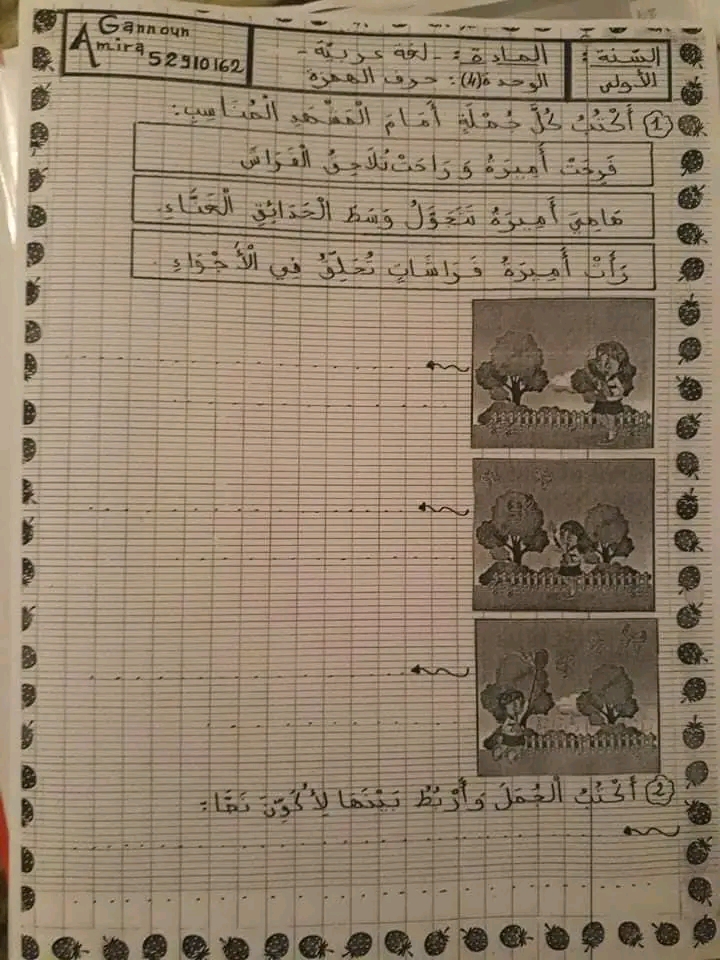 Gannoun
Amira 52910162
المادة: - لغة عربيّة -
الوحدة (4): حرف الهمزة
السّنة:
الأولى
1 أَكْتُبُ كُلَّ جُمْلَةٍ أَمَامَ الْمَشْهَدِ الْمُنَاسِبِ:
فَرِحَتْ أَمِيرَةُ وَ رَاحَتْ تُلَاحِقُ الْفَرَاشَ
هَاهِيَ أَمِيرَةُ تَتَجَوَّلُ وَسَطَ الْحَدَائِقِ الْغَنَّاءِ.
رَأَتْ أَمِيرَةُ فَرَاشَاتٍ تُحَلِّقُ فِي الْأَجْوَاءِ.
2 أَكْتُبُ الْجُمَلَ وَأَرْبُطُ بَيْنَهَا لِأُكَوِّنَ نَصًّا: